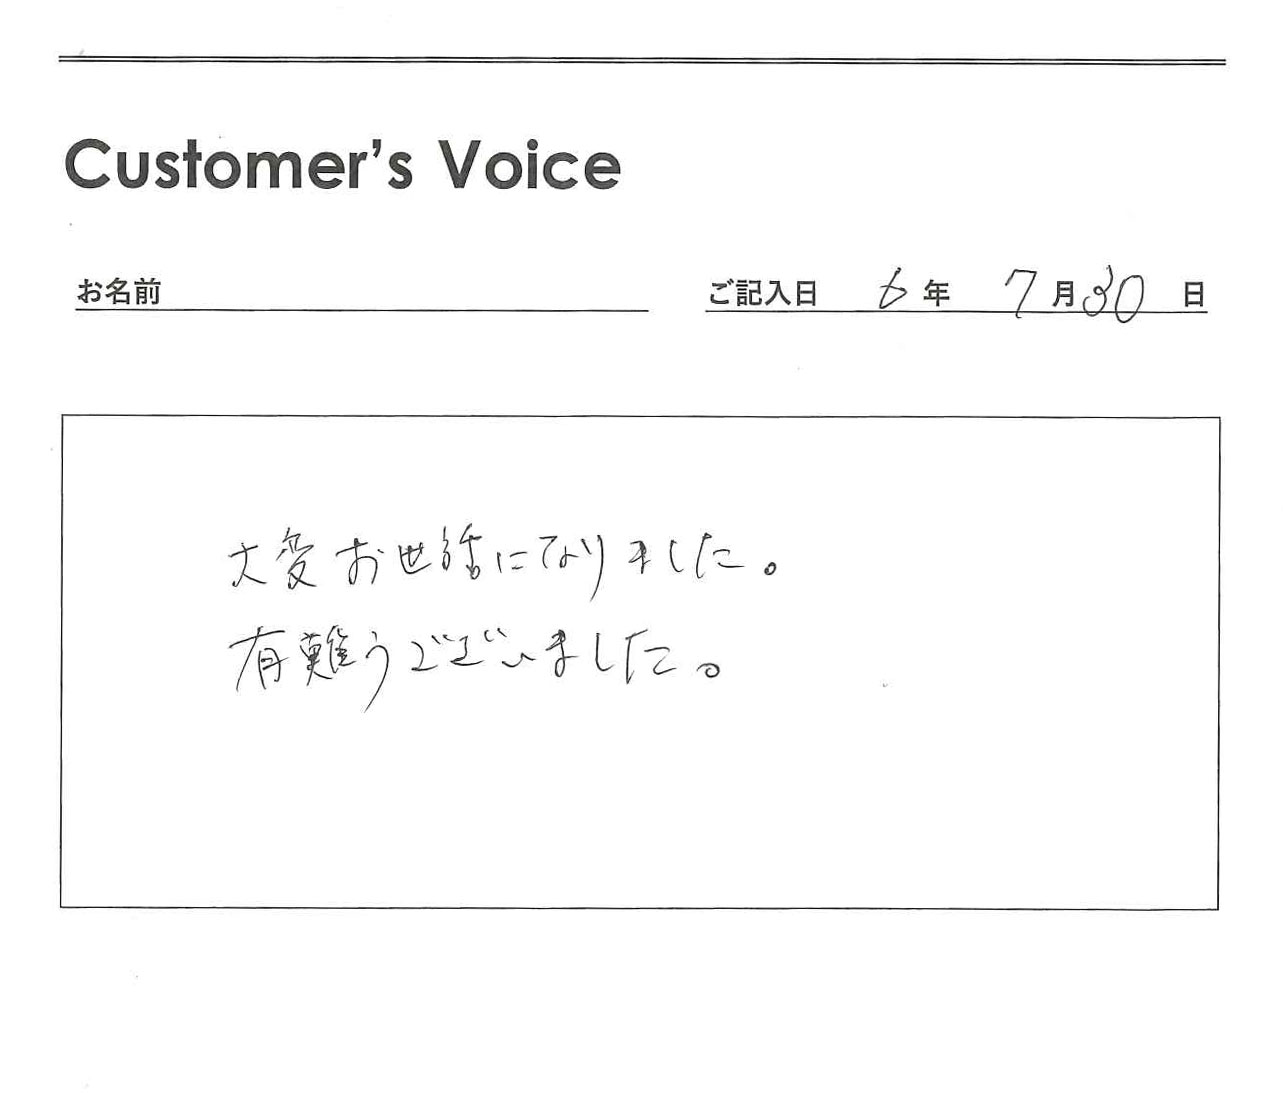 Customer's Voice
お名前
ご記入日 6年 7月30日
大変お世話になりました。
有難うございました。